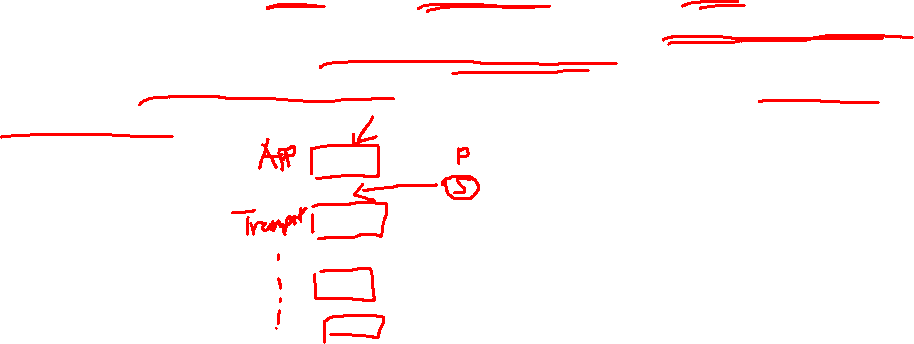 App
P
S
Transport